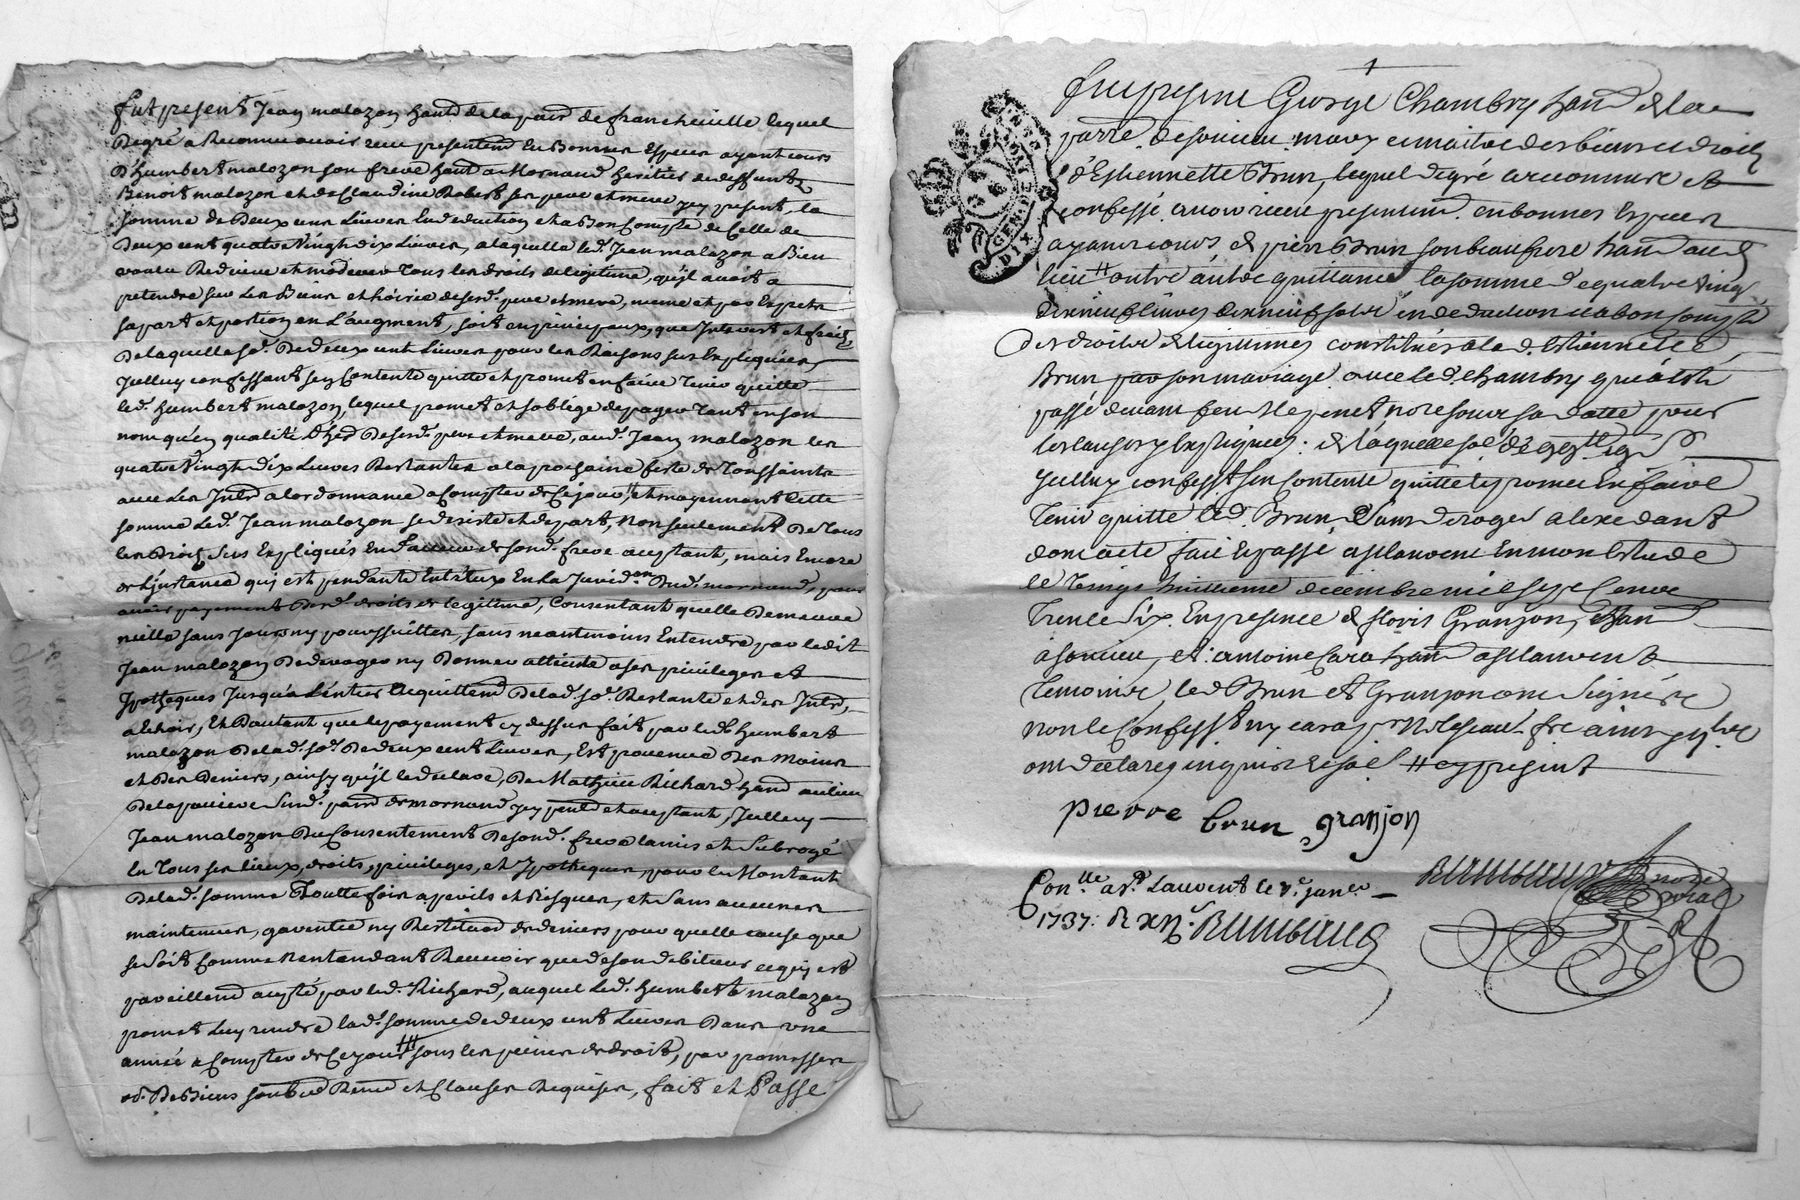 fut present Jean malozon habt de la parr de francheville lequel
De gré a Reconnu avoir recu presentemt En Bonnes Especes ayant cours
D'humbert malozon son frere habt a Mornand heritier de deffunts
Benoit malozon et de Claudine Robert ses pere et mere icy present, la
somme de Deux cent Livres En deduction et a Bon Compte de Celle de
Deux cent quatre Vingh dix Livres, a laquelle led. Jean malozon a Bien
voulu Reduire et moderer Tous les droits de legitime, qu'il avoit a
pretendre sur Les Biens et hoirie desesd. pere et mere, meme
sa part et portion en L'augment, soit en principaux, que Interest et fruits
De laquelle so.e De deux cent Livres pour les Raisons sus Expliquées
Jcelluy confessant s'en Contente quitte et promet en faire Tenir quitte
led. humbert malozon, lequel promet et s'oblige de payer Tant en son
nom qu'en qualité d'hed. Desesd. pere et mere, aud. Jean malozon les
quatre Vingh dix Livres Restantes a la prochaine feste de Toussaints
avec Les Jnts a lordonnance a Compter de Ce jour, et moyennant Cette
somme Led. Jean malozon se desiste et depart, Non seulement De Tous
les Droits sus Expliqués En faveur de sond. frere acceptant, mais Encore
de L'instance qui est pendante Entr'eux En La Jurid.on Dud. mornand, pour
avoir payement Desd. droits de legitime, Consentant quelle Demeure
nulle sans pouvoir Jcelle poursuitte, sans neantmoins Entendre par ledit
Jean malozon De deroger ny Donner atteinte a ses privileges et
Jpotheques Jusqu'a L'entier acquittemt De lad. so.e Restante et des Jnts,
a Echoir, Et D'autant que le payement cy dessus fait par led. humbert
malozon De lad. so.e De deux cent Livres, Est provenue Des Mains
et Des Deniers, ainsy qu'il le declare, De Mathieu Richard habt au lieu
De la pariere Susd. parr de mornand icy pnt et acceptant, Jcelluy
Jean malozon Du Consentement De sond. frere la mis et Subrogé
En Tous ses lieux, droits, privileges, et Jpotheques, pour le Montant
De lad. somme Toutte fois a perils et Risques, et Sans aucunes
maintenue, garentie ny Restitution de deniers pour quelle cause que
se soit Comme N'entendant Recevoir que de son debiteur ce qui est
pareillemt accepté par led. Richard, auquel Led. humbert malozon
promet Luy rendre lad. somme de deux cent Livres Dans une
année a Compter de Ce jour sous les peines de droit, par promesses
od. De Biens soub.on Renon et Clauses Requises, fait et Passé
fut present George Chambry habt de la
parr.e de soucieu mary et maitre des biens et droits
d'Estiennette Brun, lequel de gré a reconnu et
confessé avoir recu presentemt en bonnes Especes
ayant cours de pierre Brun son beau frere habt aud.
lieu # outre autre quittance la somme de quatre ving
dix neuf livres dix neuf sols en deduction et a bon compte
Des droits de legitimes constitués a lad. Estiennette
Brun par son mariage avec led. Chambry quitatté
passé devant feu Me penet no.re sous sa datte pour
les causes y Expliquées. de laquelle so.e de 99 ll 19 s
Jcelluy confess.t s'en Contente quitte et promet En faire
Tenir quitte led. Brun, Sans deroger a l'exedant
dont acte fait Et passé a st laurent En mon Estude
le Vingt huitieme decembre mil sept Cent
Trente Six En presence de floris Granjon, habt
a soucieu, et antoine Cara habt a st laurent
Temoins, led. Brun et Granjon ont Signés &
non le Confess.t ny cara pour Ne le scavoir fre ainsy qu'ils
ont declaré enquis et so.e # cy present
pierre brun granjon
Con.lle a st Laurent le 7.e janer
1737. R xii s. Rambaud
Rambaud no.re royal
GEN DIX